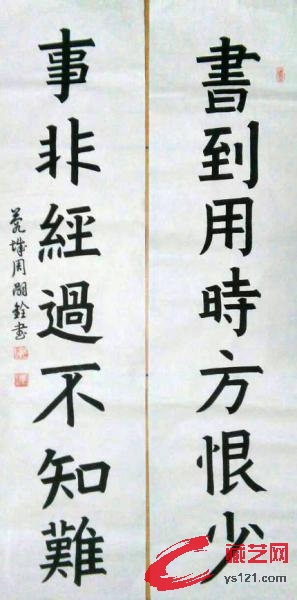 書到用時方恨少
事非經過不知難
周嗣銓書
藏艺网
ys121.com